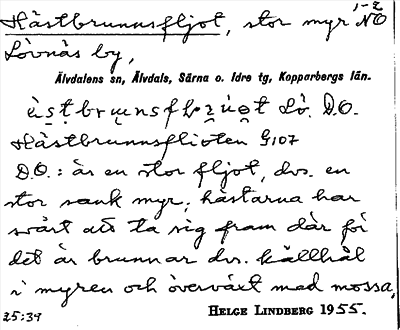 Hästbrunnsfljot, stor myr 1-2 NO
Lövnäs by,
Älvdalens sn, Älvdals, Särna o. Idre tg, Kopparbergs län.
Lö. D.O.
Hästbrunnsflioten G107
D.O.: är en stor fljot, dvs. en
stor sank myr; hästarna har
svårt att ta sig fram där för
det är brunnar dvs. källhål
i myren och övervävt med mossa,
25:39 HELGE LINDBERG 1955.